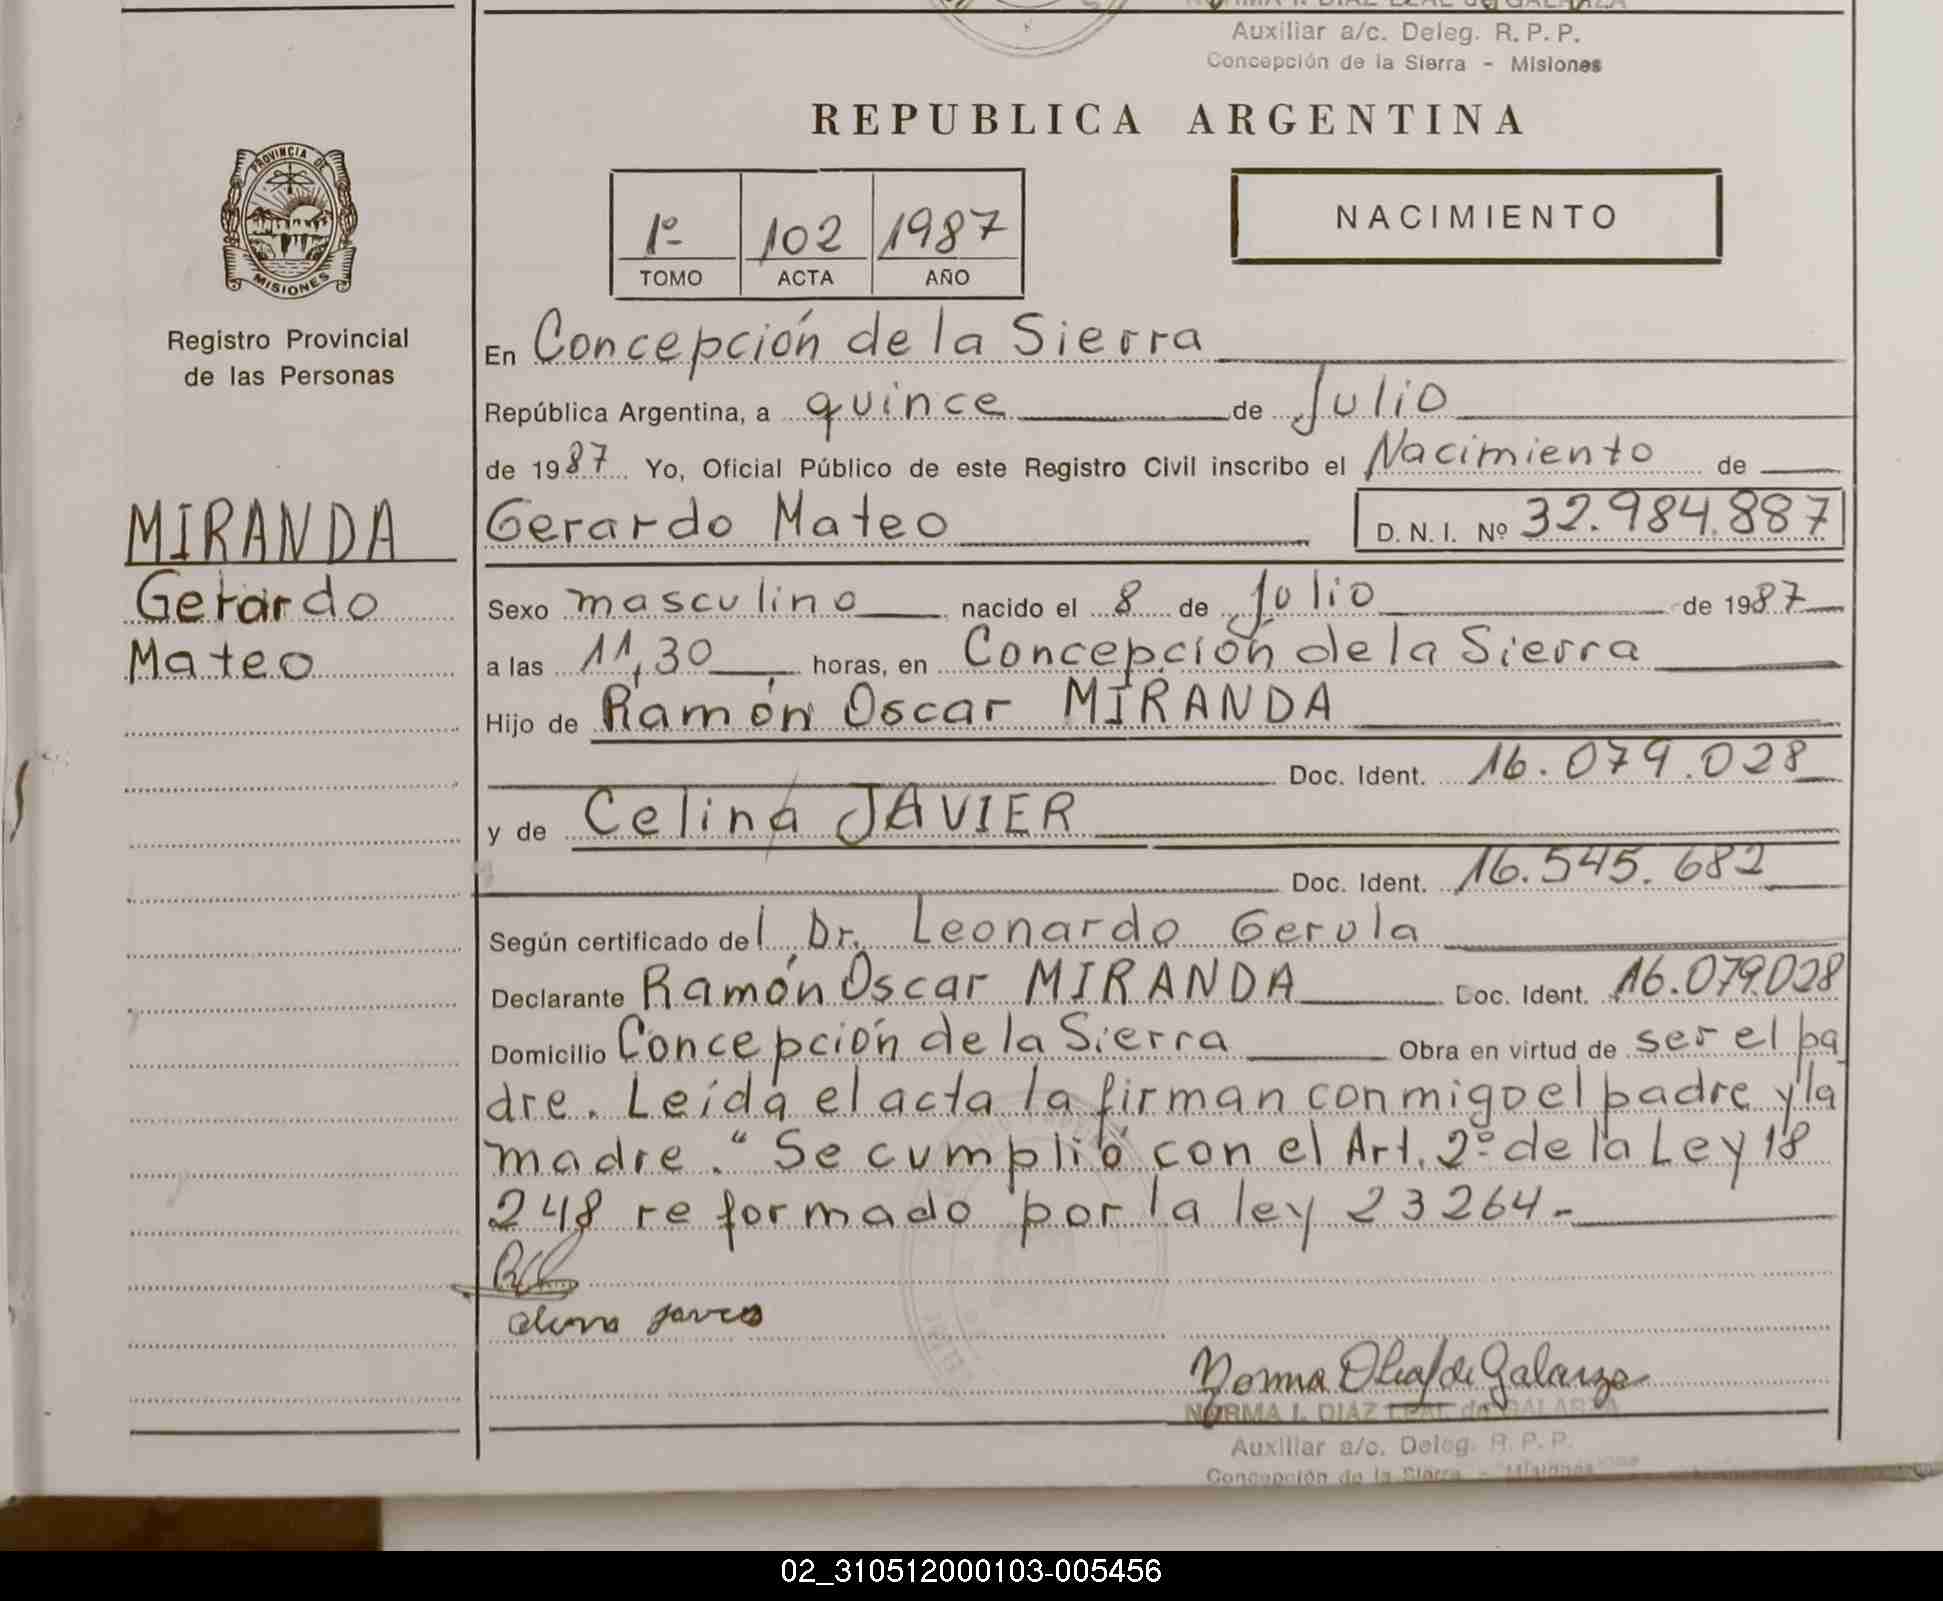 Auxiliar a/c. Deleg. R. P. P.
Concepción de la Sierra - Misiones
REPUBLICA ARGENTINA
PROVINCIA DE
MISIONES
Registro Provincial
de las Personas
1º 102 1987
TOMO ACTA AÑO
NACIMIENTO
En Concepción de la Sierra
República Argentina, a quince de Julio
de 1987 Yo, Oficial Público de este Registro Civil inscribo el Nacimiento de
MIRANDA
Gerardo
Mateo
Gerardo Mateo D. N. I. Nº 32.984.887
Sexo masculino nacido el 8 de Julio de 1987
a las 11,30 horas, en Concepción de la Sierra
Hijo de Ramón Oscar MIRANDA
Doc. Ident. 16.079.028
y de Celina JAVIER
Doc. Ident. 16.545.682
Según certificado del Dr. Leonardo Gerula
Declarante Ramón Oscar MIRANDA Doc. Ident. 16.079.028
Domicilio Concepción de la Sierra Obra en virtud de ser el pa
dre. Leída el acta la firman conmigo el padre y la
madre. "Se cumplió con el Art. 2º de la Ley 18
248 reformado por la ley 23264.-
NORMA I. DIAZ LEAL de GALARZA
Auxiliar a/c. Deleg. R. P. P.
Concepción de la Sierra - Misiones
02_310512000103-005456